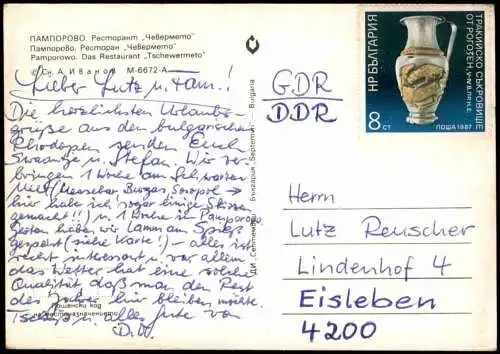 ПАМПОРОВО. Ресторант „Чевермето"
Пампорово. Ресторан „Чевермето"
Pamporowo. Das Restaurant „Tschewermeto"
© Сн. А. Иванов М-6672-А
Lieber Lutz u. Fam.!
Die herzlichsten Urlaubs-
grüße aus den bulgarischen
Rhodopen senden Euch
Swaantje u. Stefan. Wir ver-
bringen 1 Woche am Schwarzen
Meer (Nessebar, Burgas, Sosopol →
hier habe ich sogar einige Skizzen
gemacht!!) u. 1 Woche in Pamporovo.
Gestern haben wir Lamm am Spieß
gespeist (siehe Karte!) – alles ist
recht interessant u. vor allem
das Wetter hat eine solche
Qualität, daß man den Rest
des Jahres hier bleiben möchte.
Tschüß u. alles Gute von
D. W.
Пощенски код
на местоназначението
ДИ „Септември" България „Septemvri" — Bulgaria
GDR
DDR
НР БЪЛГАРИЯ
ТРАКИЙСКО СЪКРОВИЩЕ
ОТ РОГОЗЕН, V-IV В. ПР. Н. Е.
8 СТ
ПОЩА 1987
Herrn
Lutz Reuscher
Lindenhof 4
Eisleben
4200